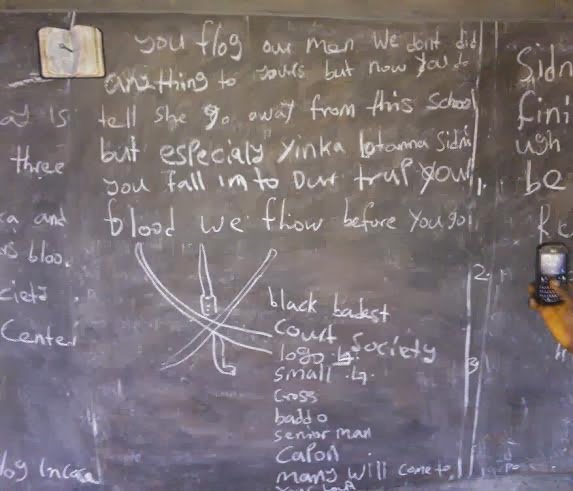 you flog our men we dont did
anything to yours but now you do
tell she go away from this School
but especialy Yinka lotanna Sidni
you fall in to Our trap you
blood we fhow before you go
black badest
Court Society
logo
small
Cross
baddo
senior man
Capon
many will come to
ay is
three
a and
rs bloo
ciety
Center
log Incase
Sidn
fini
ugh
be
Re
1.
2.
3